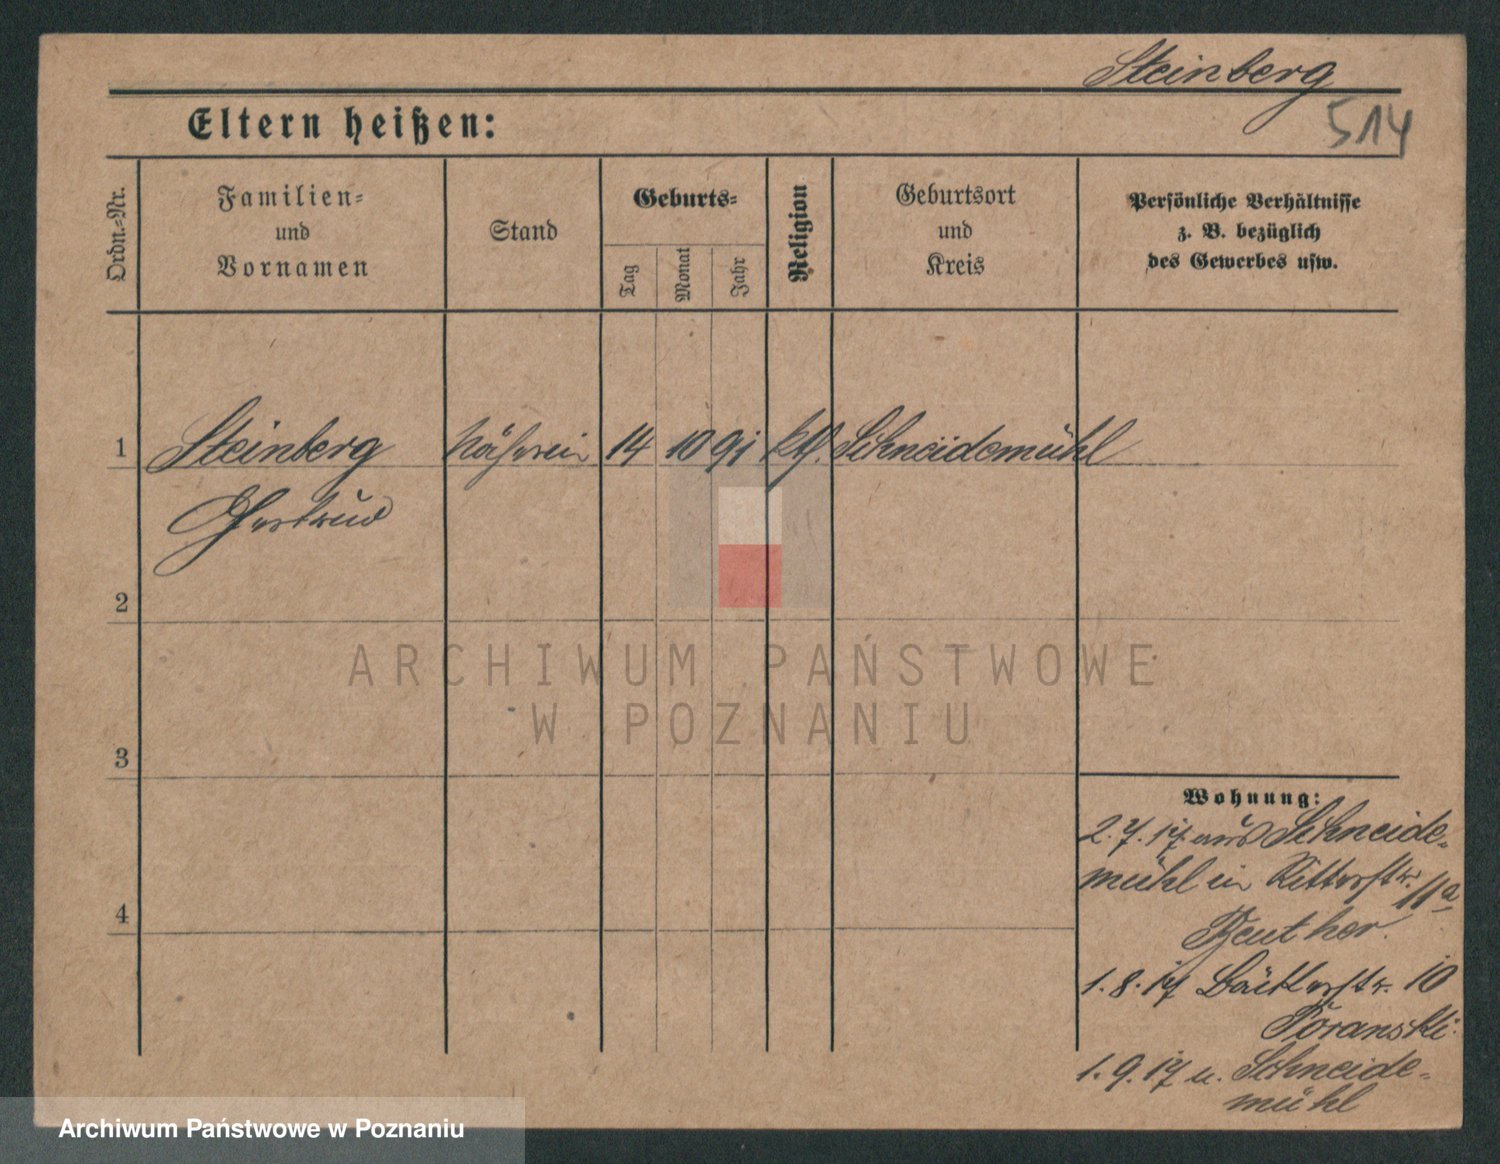 Steinberg
514
Eltern heißen:
Ordn.-Nr.
Familien-
und
Vornamen
Stand
Geburts-
Tag
Monat
Jahr
Religion
Geburtsort
und
Kreis
Persönliche Verhältnisse
z. B. bezüglich
des Gewerbes usw.
1 Steinberg Näherin 14 10 91 kth. Schneidemühl
Gertrud
2
ARCHIWUM PAŃSTWOWE
W POZNANIU
3
Wohnung:
2.7.17 aus Schneide-
mühl in Ritterstr. 11a
4
1.8.17 10
1.9.17 n. Schneide-
mühl
Archiwum Państwowe w Poznaniu